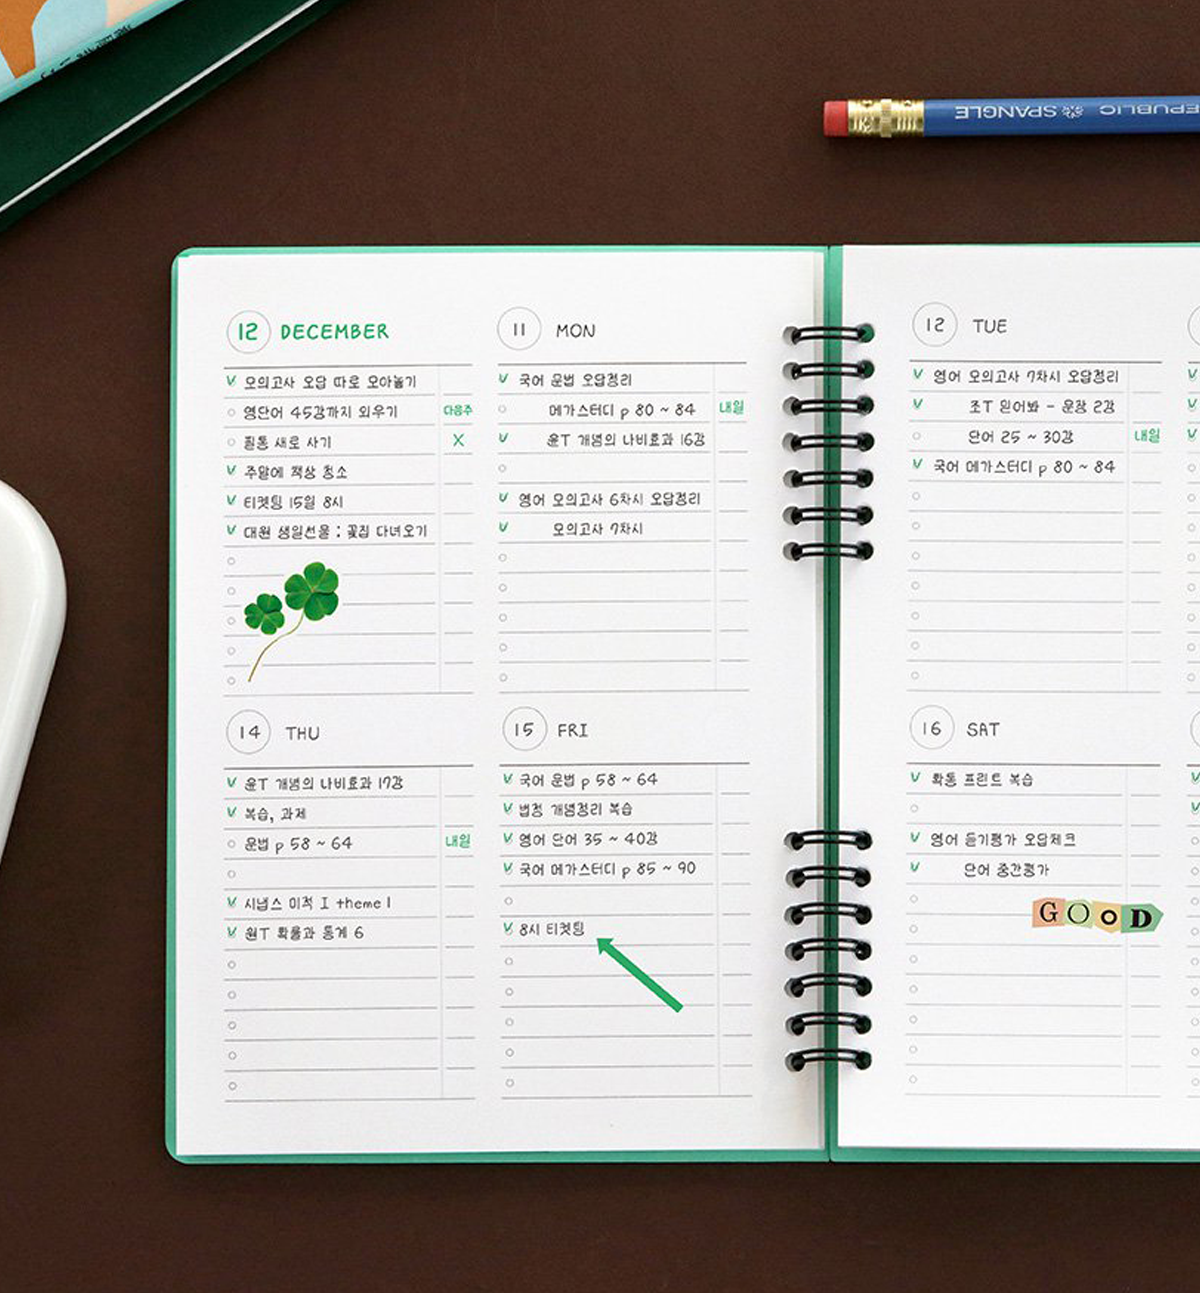 SPANGLE REPUBLIC
12 DECEMBER
모의고사 오답 따로 모아놓기
영단어 45강까지 외우기 다음주
필통 새로 사기 X
주말에 책상 청소
티켓팅 15일 8시
대원 생일선물 : 꽃집 다녀오기
11 MON
국어 문법 오답정리
메가스터디 p 80 ~ 84 내일
윤T 개념의 나비효과 16강
영어 모의고사 6차시 오답정리
모의고사 7차시
12 TUE
영어 모의고사 7차시 오답정리
조T 믿어봐 - 문장 2강
단어 25 ~ 30강 내일
국어 메가스터디 p 80 ~ 84
14 THU
윤T 개념의 나비효과 17강
복습, 과제
문법 p 58 ~ 64 내일
시냅스 미적 I theme 1
원T 확률과 통계 6
15 FRI
국어 문법 p 58 ~ 64
법정 개념정리 복습
영어 단어 35 ~ 40강
국어 메가스터디 p 85 ~ 90
8시 티켓팅
16 SAT
확통 프린트 복습
영어 듣기평가 오답체크
단어 중간평가
GOOD